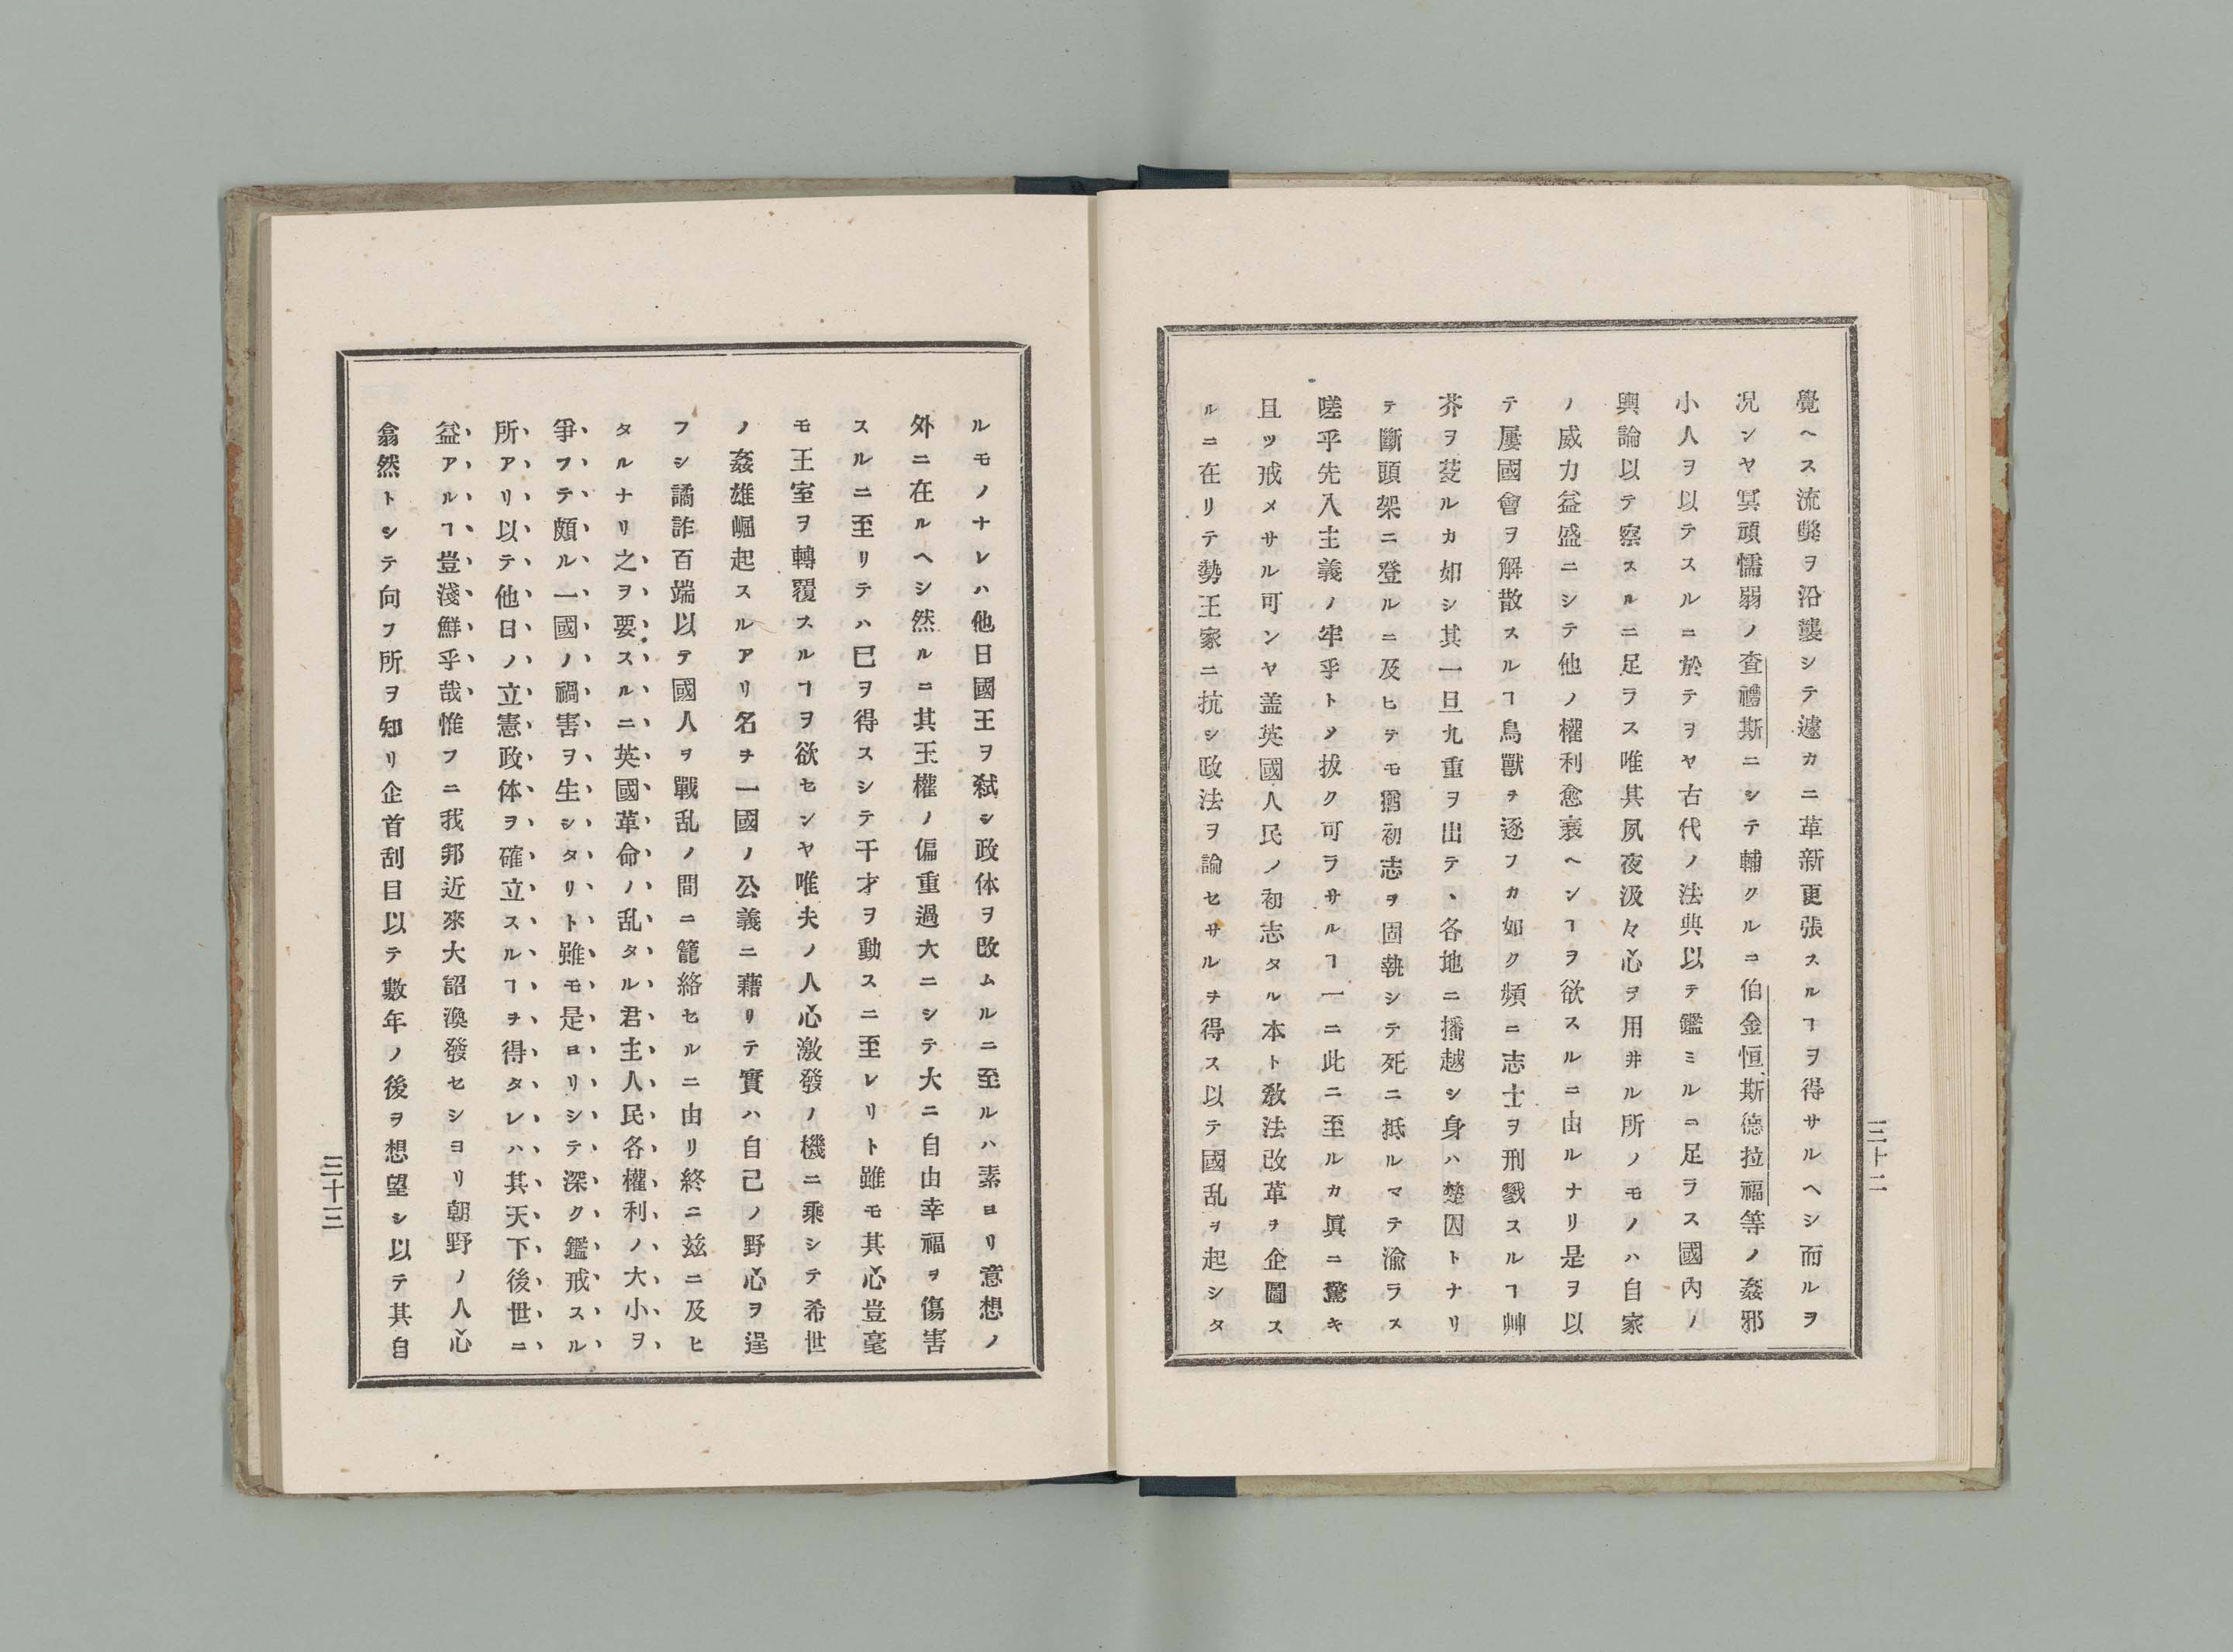 覺ヘス流弊ヲ沿襲シテ遽カニ革新更張スルヿヲ得サルヘシ而ルヲ
况ンヤ冥頑懦弱ノ査禮斯ニシテ輔クルニ伯金恒斯德拉福等ノ姦邪
小人ヲ以テスルニ於テヲヤ古代ノ法典以テ鑑ミルニ足ラス國內ノ
輿論以テ察スルニ足ラス唯其夙夜汲々心ヲ用井ル所ノモノハ自家
ノ威力益盛ニシテ他ノ權利愈衰ヘンヿヲ欲スルニ由ルナリ是ヲ以
テ屢國會ヲ解散スルヿ鳥獸ヲ逐フカ如ク頻ニ志士ヲ刑戮スルヿ艸
芥ヲ芟ルカ如シ其一旦九重ヲ出テヽ各地ニ播越シ身ハ楚囚トナリ
テ斷頭架ニ登ルニ及ヒテモ猶初志ヲ固執シテ死ニ抵ルマテ渝ラス
嗟乎先入主義ノ牢乎トメ拔ク可ラサルヿ一ニ此ニ至ルカ眞ニ驚キ
且ツ戒メサル可ンヤ盖英國人民ノ初志タル本ト敎法改革ヲ企圖ス
ルニ在リテ勢王家ニ抗シ政法ヲ論セサルヲ得ス以テ國乱ヲ起シタ
三十二
ルモノナレハ他日國王ヲ弑シ政体ヲ改ムルニ至ルハ素ヨリ意想ノ
外ニ在ルヘシ然ルニ其王權ノ偏重過大ニシテ大ニ自由幸福ヲ傷害
スルニ至リテハ已ヲ得スシテ干才ヲ動スニ至レリト雖モ其心豈毫
モ王室ヲ轉覆スルヿヲ欲センヤ唯夫ノ人心激發ノ機ニ乘シテ希世
ノ姦雄崛起スルアリ名ヲ一國ノ公義ニ藉リテ實ハ自己ノ野心ヲ逞
フシ譎詐百端以テ國人ヲ戰乱ノ間ニ籠絡セルニ由リ終ニ玆ニ及ヒ
タルナリ之ヲ要スルニ英國革命ノ乱タル君主人民各權利ノ大小ヲ
爭フテ頗ル一國ノ禍害ヲ生シタリト雖モ是ヨリシテ深ク鑑戒スル
所アリ以テ他日ノ立憲政体ヲ確立スルヿヲ得タレハ其天下後世ニ
益アルヿ豈淺鮮乎哉惟フニ我邦近來大詔渙發セシヨリ朝野ノ人心
翕然トシテ向フ所ヲ知リ企首刮目以テ數年ノ後ヲ想望シ以テ其自
三十三